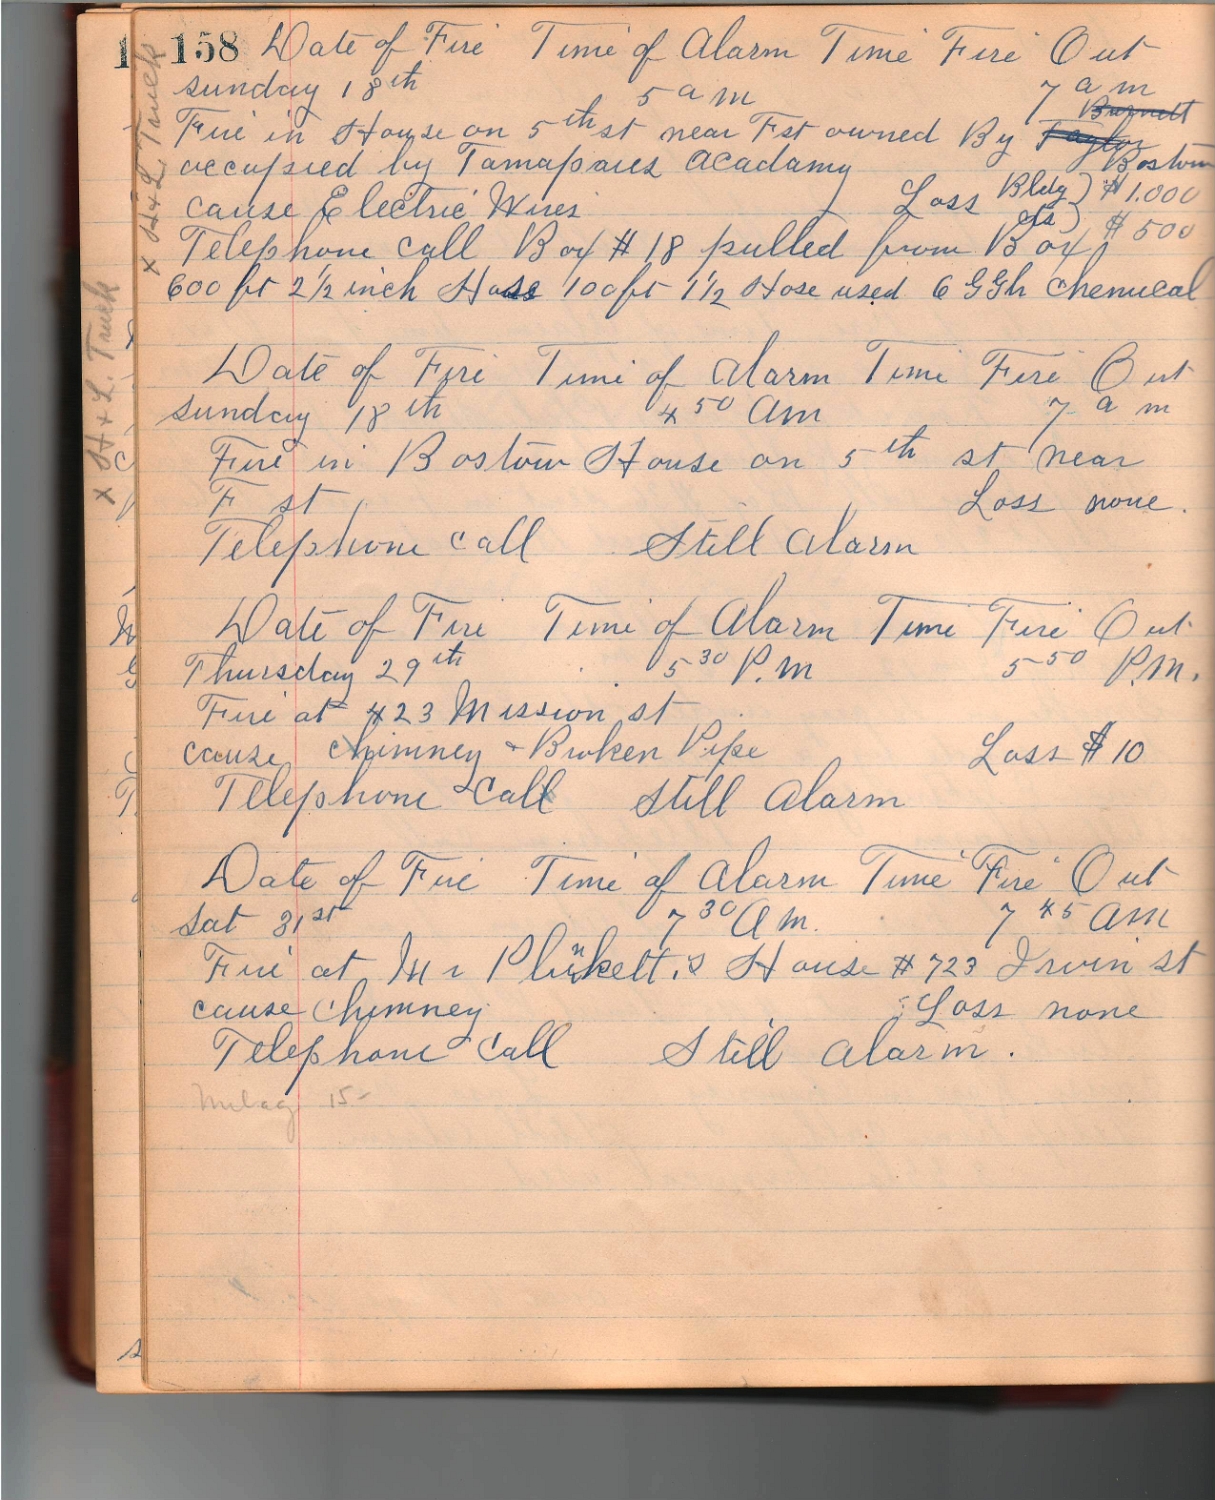 158 Date of Fire Time of Alarm Time Fire Out
sunday 18th 5 am 7 am
Burnett
Fire in House on 5th st near F st owned By Taylor
Boston
occupied by Tamapais Acadamy
cause Electric Wires Loss Bldg) $1.000
cts) $500
Telephone call Box # 18 pulled from Box
600 ft 2½ inch Hose 100 ft 1½ Hose used 6 GGh chemical
x H & L Truck
Date of Fire Time of Alarm Time Fire Out
sunday 18th 4 50 Am 7 a m
Fire in Boston House on 5th st near
F st Loss none.
Telephone call Still Alarm
x H & L. Truck
Date of Fire Time of Alarm Time Fire Out
Thursday 29th 5 30 P.m 5 50 P.m.
Fire at 423 Mission st
cause chimney & Broken Pipe Loss $10
Telephone Call Still Alarm
Date of Fire Time of Alarm Time Fire Out
Sat 31st 7 30 A m. 7 45 Am
Fire at Mr Plunkett.s House # 723 Irvin st
cause chimney Loss none
Telephone call Still alarm.
15-